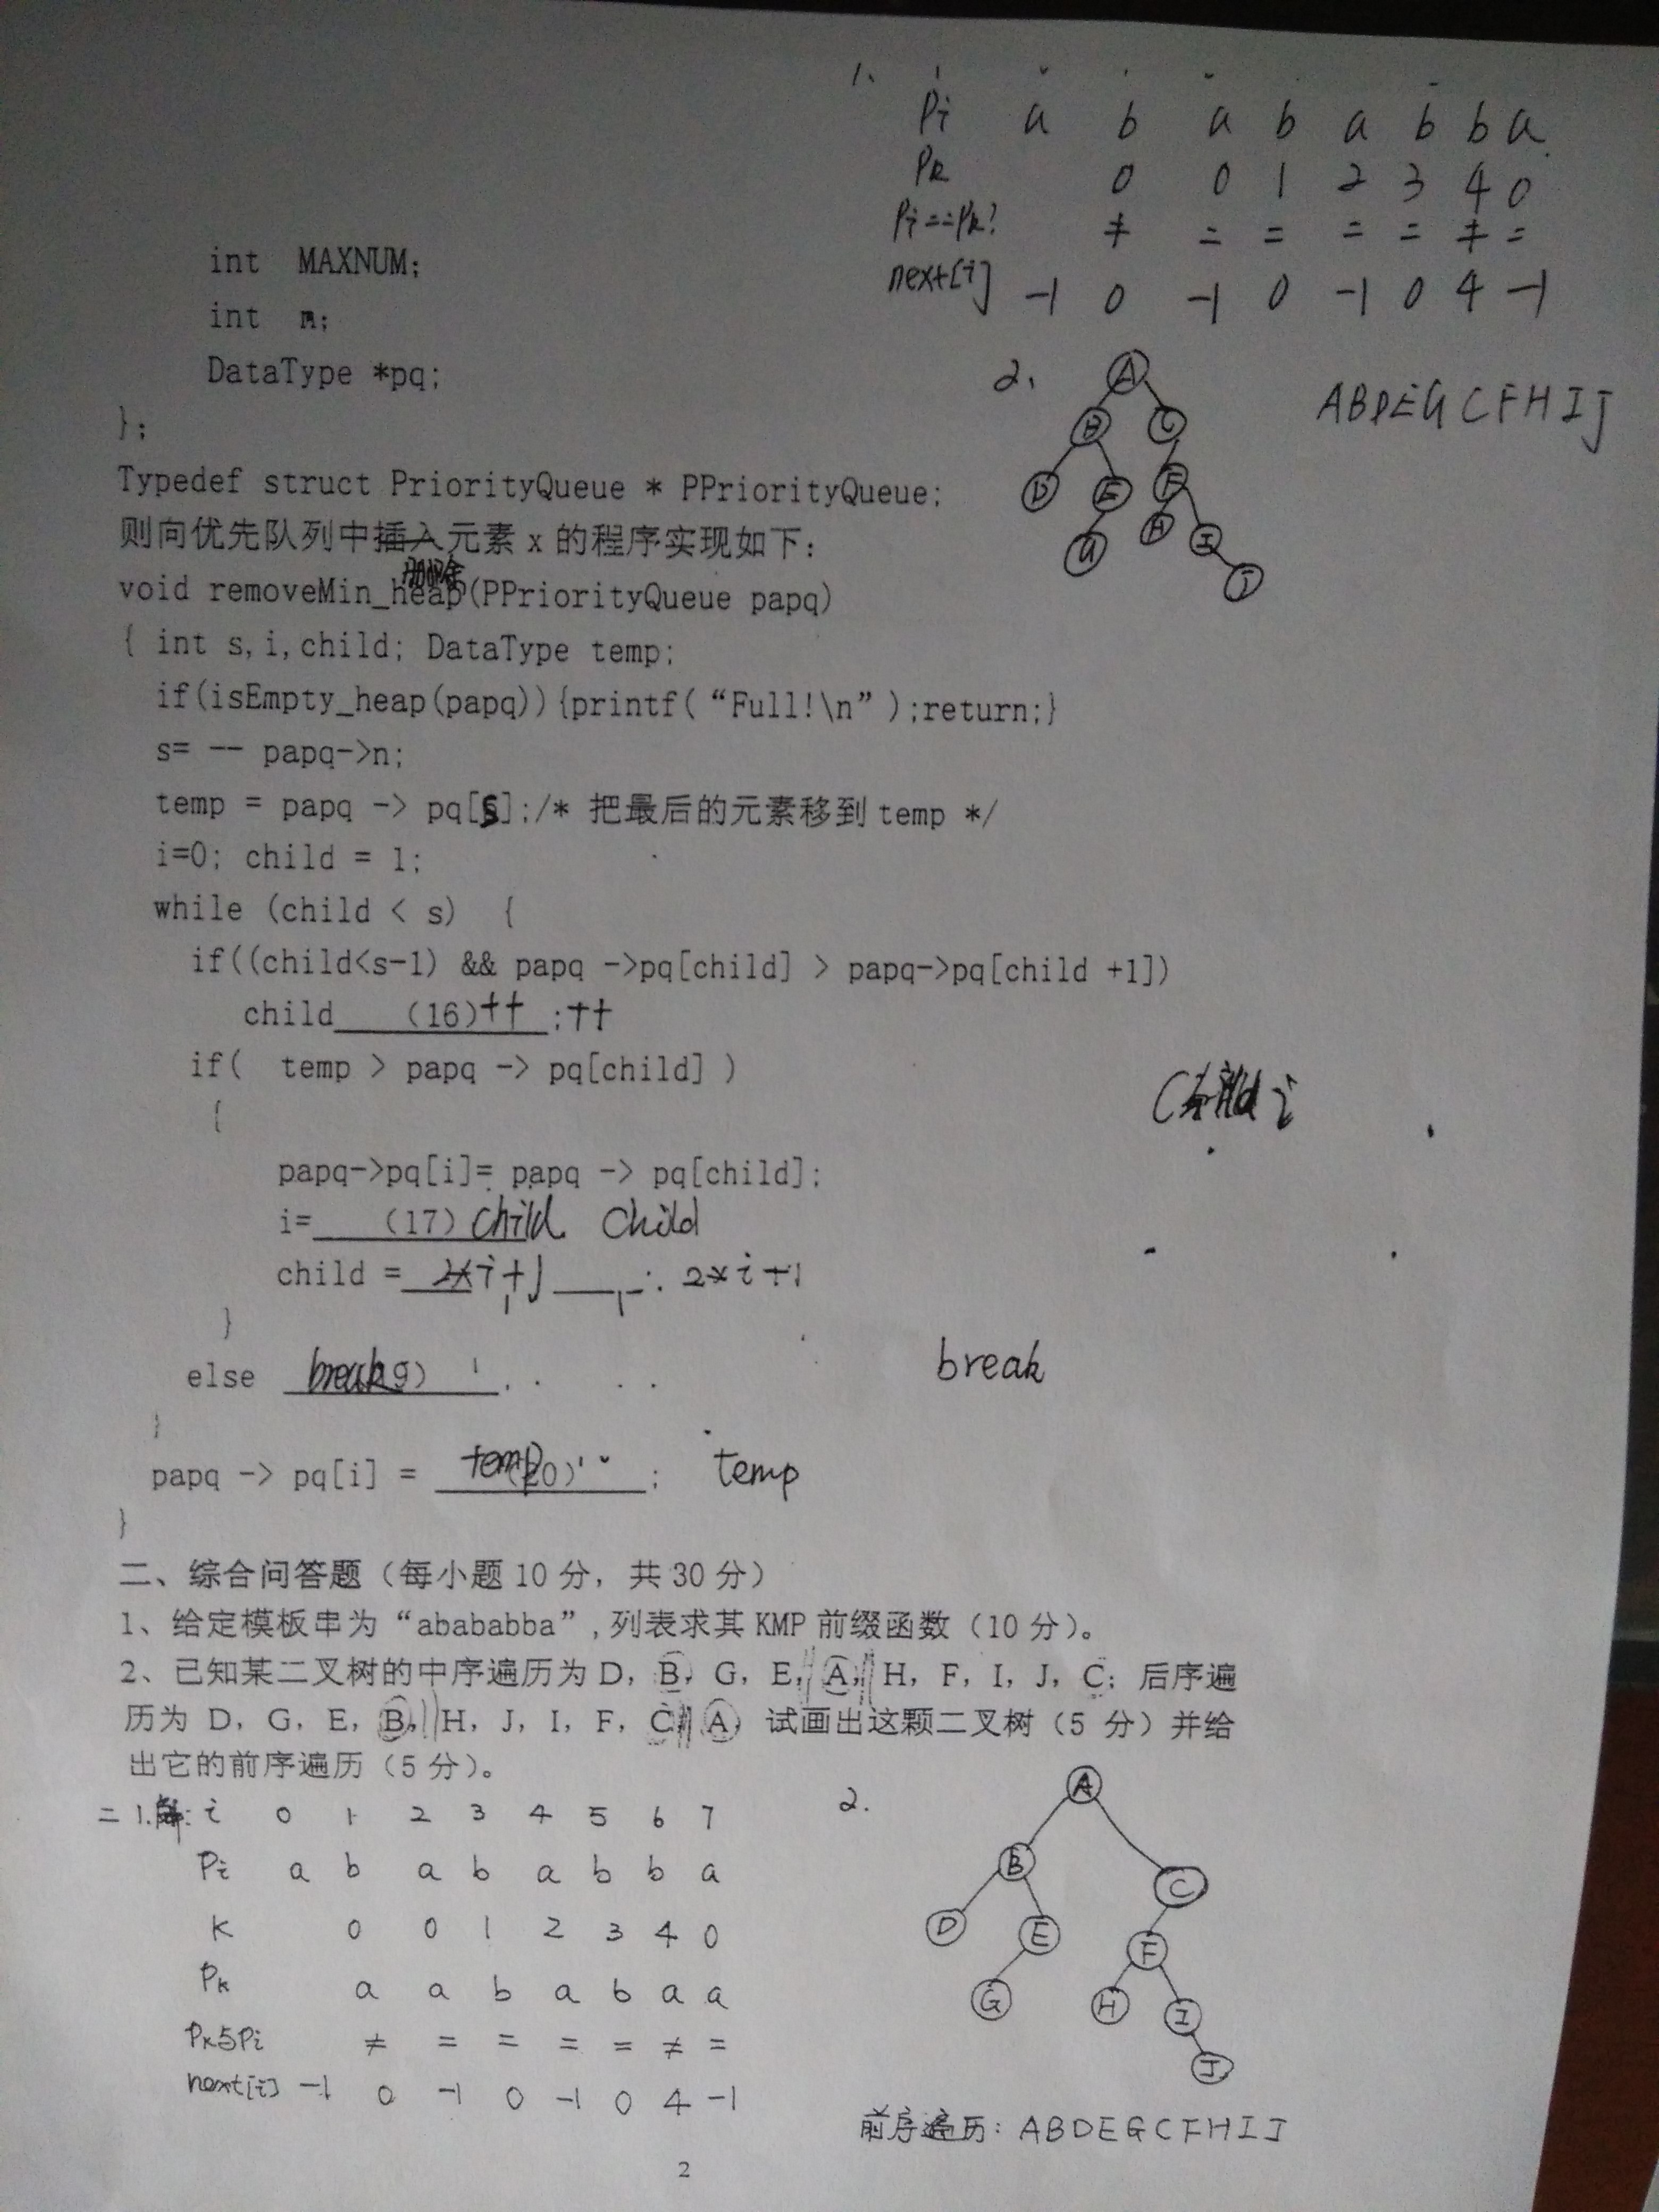 1、
Pi a b a b a b b a
PK 0 0 1 2 3 4 0
Pi==PK? ≠ = = = = ≠ =
next[i] -1 0 -1 0 -1 0 4 -1
int MAXNUM;
int n;
DataType *pq;
};
2、
A
B C
D E F
G H I
J
ABDEGCFHIJ
Typedef struct PriorityQueue * PPriorityQueue;
则向优先队列中插入元素 x 的程序实现如下：
删除
void removeMin_heap(PPriorityQueue papq)
{ int s,i,child; DataType temp;
if(isEmpty_heap(papq)){printf(“Full!\n”);return;}
s= -- papq->n;
temp = papq -> pq[s];/* 把最后的元素移到 temp */
i=0; child = 1;
while (child < s) {
if((child<s-1) && papq ->pq[child] > papq->pq[child +1])
child (16)++ ;++
if( temp > papq -> pq[child] )
{
child i
papq->pq[i]= papq -> pq[child];
i= (17) child child
child = 2*i+1 ; 2*i+1
}
else break 9) break
}
papq -> pq[i] = temp (20) ; temp
}
二、综合问答题（每小题 10 分，共 30 分）
1、给定模板串为“abababba”,列表求其 KMP 前缀函数（10 分）。
2、已知某二叉树的中序遍历为 D，B，G，E，A，H，F，I，J，C；后序遍
历为 D，G，E，B，H，J，I，F，C，A，试画出这颗二叉树（5 分）并给
出它的前序遍历（5 分）。
二 1.解: i 0 1 2 3 4 5 6 7
Pi a b a b a b b a
K 0 0 1 2 3 4 0
PK a a b a b a a
PK与Pi ≠ = = = = ≠ =
next[i] -1 0 -1 0 -1 0 4 -1
2.
A
B C
D E F
G H I
J
前序遍历: ABDEGCFHIJ
2